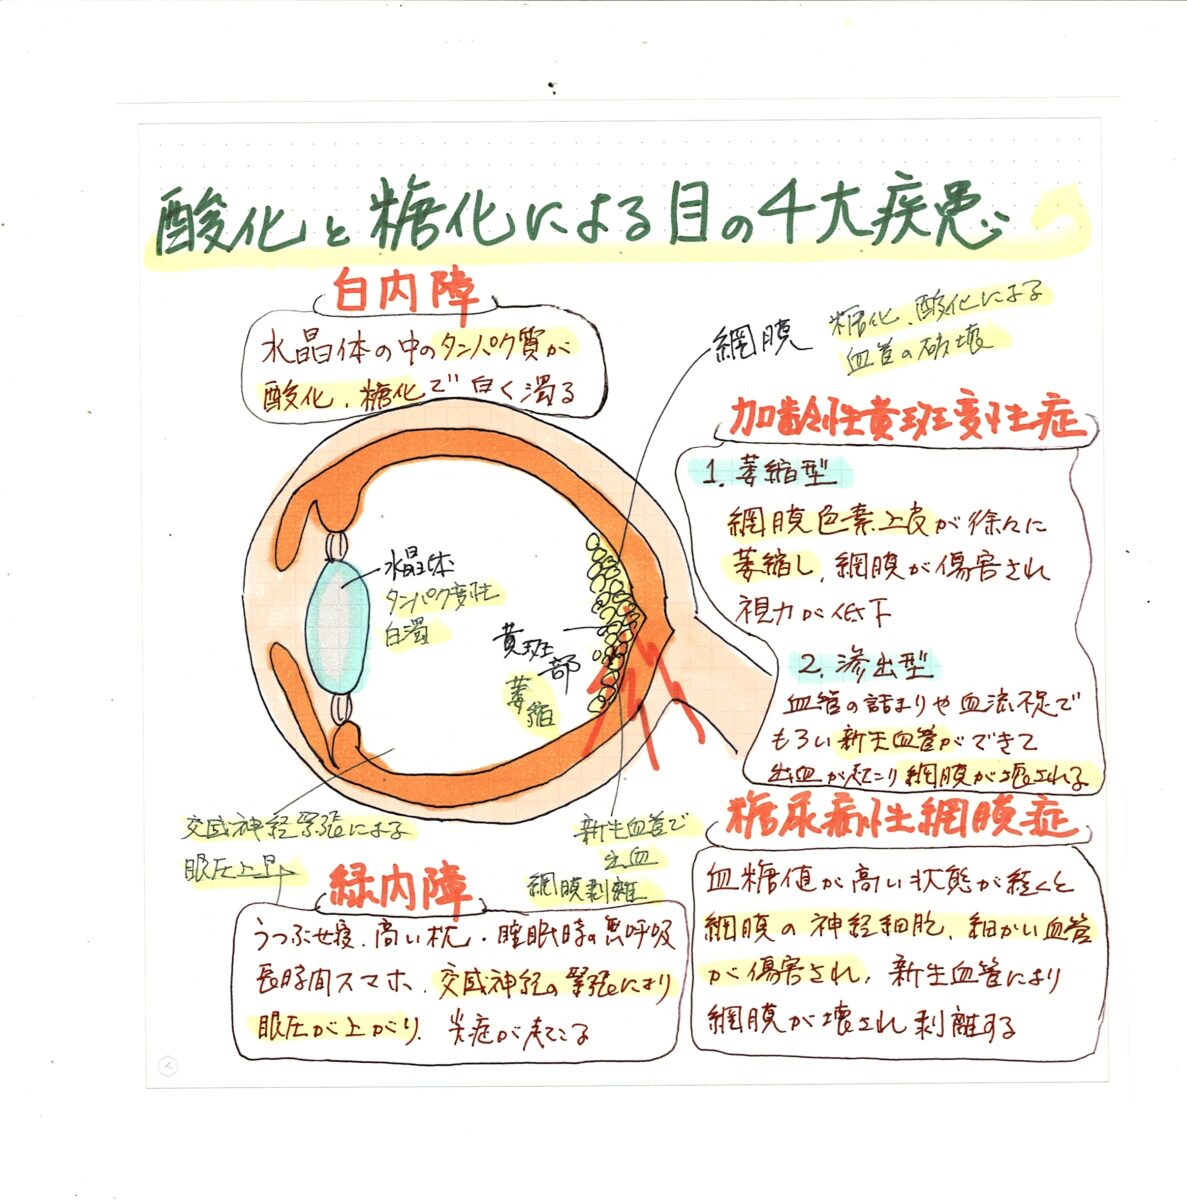 酸化と糖化による目の4大疾患
白内障
水晶体の中のタンパク質が
酸化、糖化で白く濁る
網膜
糖化、酸化による
血管の破壊
加齢性黄斑変性症
1. 萎縮型
網膜色素上皮が徐々に
萎縮し、網膜が傷害され
視力が低下
2. 滲出型
血管の詰まりや血流不足で
もろい新生血管ができて
出血が起こり網膜が壊される
水晶体
タンパク変性
白濁
黄斑
部
萎縮
交感神経緊張による
眼圧上昇
新生血管で
出血
網膜剥離
緑内障
うつぶせ寝、高い枕・睡眠時の悪呼吸
長時間スマホ、交感神経の緊張により
眼圧が上がり、炎症が起こる
糖尿病性網膜症
血糖値が高い状態が続くと
網膜の神経細胞、細かい血管
が傷害され、新生血管により
網膜が壊され剥離する